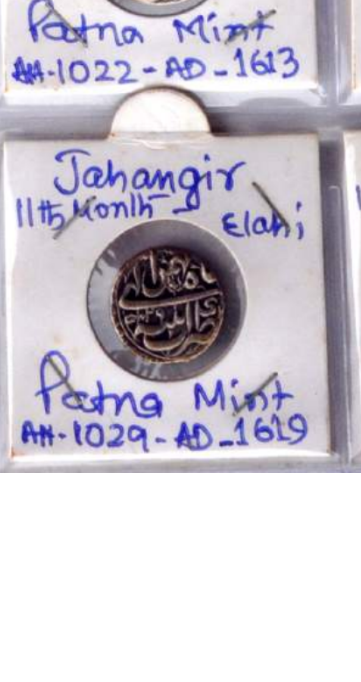 Patna Mint
AH-1022-AD-1613
Jahangir
11th Month Elahi
Patna Mint
AH-1029-AD-1619